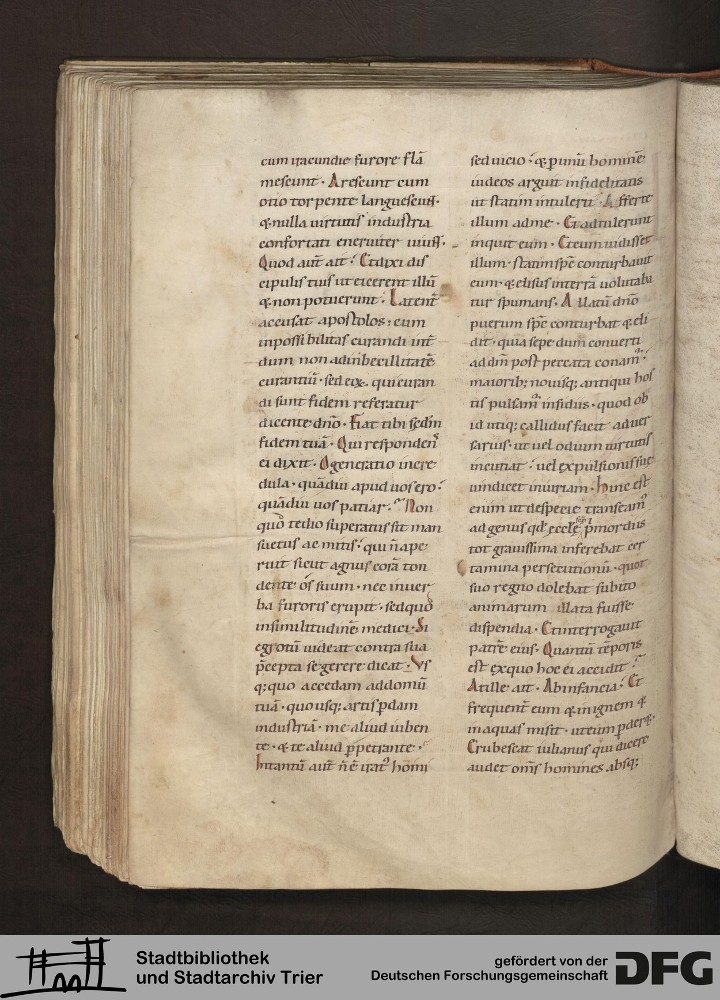 cum iracundie furore flā
mescunt · Arescunt cum
otio torpente languescuɴt·
& nulla uirtutis industria
confortati eneruiter uiuſt·
Quod aut̄ ait · Et dixi dis
cipulis tuis ut eicerent illū
& non potuerunt · Latent̄
accusat apostolos · cum
inpossibilitas curandi int̄
dum non ad inbecillitatē
curantiū · sed eoꝝ qui curan
di sunt fidem referatur
dicente dn̄o · Fiat tibi scdm
fidem tuā · Qui respondens
ei dixit · O generatio incre
dula · quādiu apud uos ero ·
quādiu uos patiar · Non
quo tedio superatus sit man
suetus ac mitis · qui n̄ ape
ruit sicut agnus corā ton
dente os suum · nec in uer
ba furoris erupit · sed quo
in similitudinē medici · Si
egrotū uideat contra sua
p̄cepta se gerere dicat · Vs
q; quo accedam ad domū
tuā · quo usq; artis ꝑdam
industriā · me aliud iuben
te · & te aliud ꝑpetrante ·
Intantū aut̄ n̄ ē irat᷒ homi
sed uicio · & ꝑ unū hominē
iudeos arguit infidelitatis
ut statim intulerit · Afferte
illum ad me · Et adtulerunt
inquit eum · Et cum uidisset
illum · statim sp̄c conturbauit
eum · & elisus in terrā uolutaba
tur spumans · Allatū dn̄o
puerum sp̄c conturbat & eli
dit · quia sepe dum conuerti
ad dn̄m post peccata conam᷒ ·
maiorib; nouisq; antiqui hos
tis pulsam᷒ insidiis · quod ob
id utiq; callidus facit aduer
sarius · ut uel odium uirtutis
incutiat · uel expulsionis sue
uindicet iniuriam · Hinc est
enim ut de specie transeam᷒
ad genus qd̄ eccle p̄mordiis
tot grauissima inferebat cer
tamina persecutionū · quot
suo regno dolebat subito
animarum illata fuisse
dispendia · Et interrogauit
patrē eius · Quantū tēporis
est ex quo hoc ei accidit ·
At ille ait · Ab infancia · Et
frequent̄ eum & in ignem &
in aquas misit · ut eum ꝑderet ·
Erubescat iulianus qui dicere
audet om̄s homines absq;
Stadtbibliothek
und Stadtarchiv Trier
gefördert von der
Deutschen Forschungsgemeinschaft
DFG